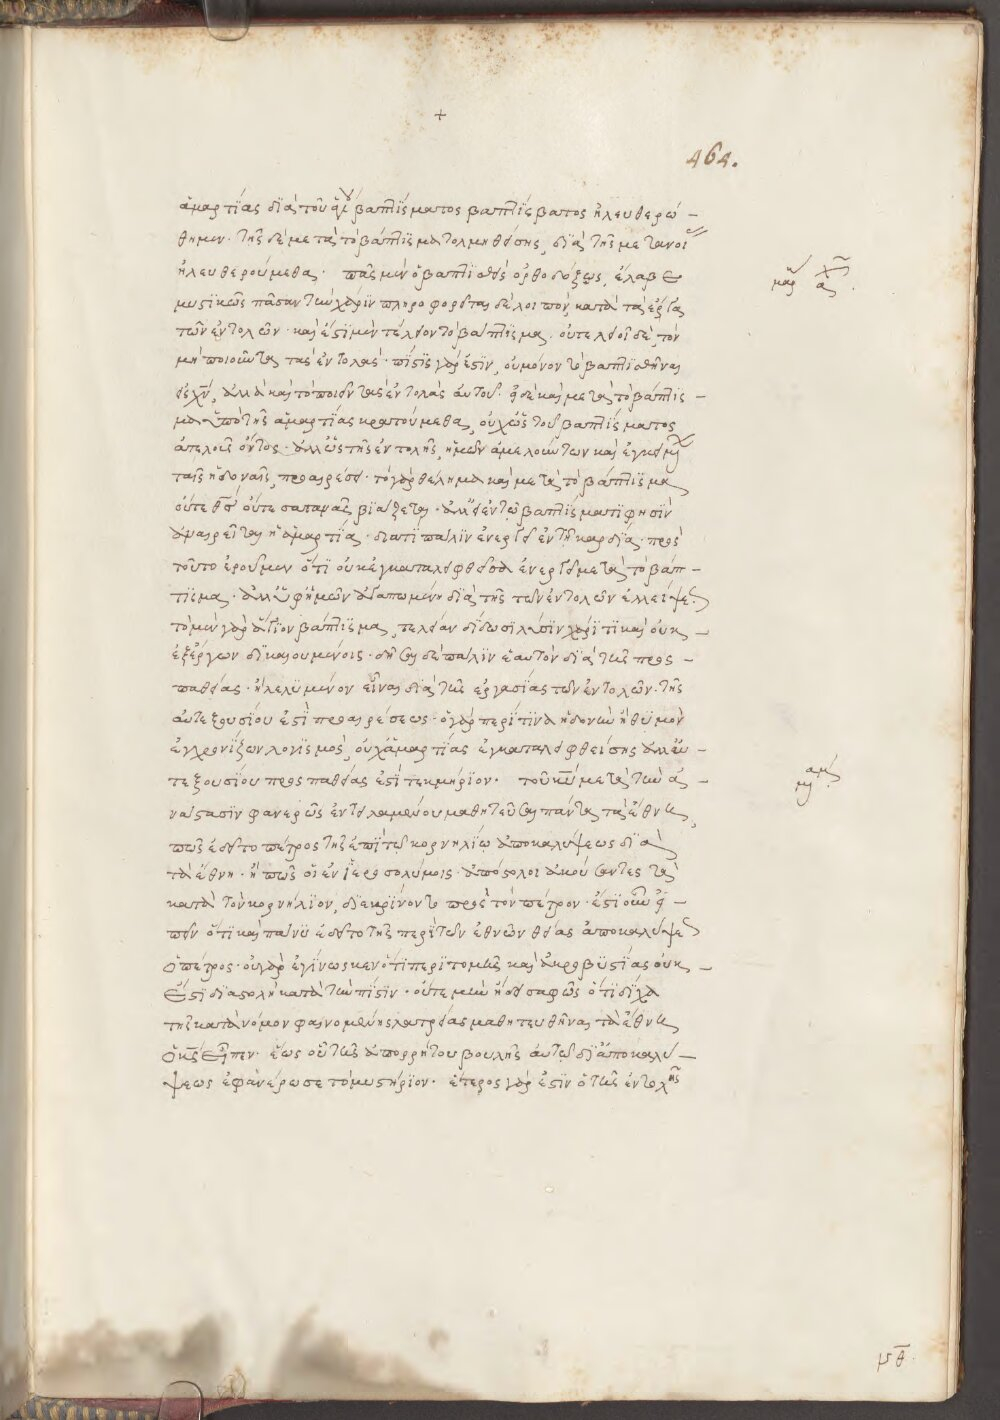 +
464.
ἁμαρτίας διὰ τοῦ ἁγίου βαπτίσματος βαπτίσβατος ἠλευθερώ-
θημεν· τῆς δὲ μετὰ τὸ βάπτισμα τολμηθείσης, διὰ τῆς μετανοί
ἠλευθερούμεθα· πᾶς μὲν ὁ βαπτισθεὶς ὀρθοδόξως, ἔλαβε
μυστικῶς πᾶσαν τὴν χάριν πληροφορεῖται δὲ λοιπὸν, κατὰ τὰς ἐργασίας
τῶν ἐντολῶν· καὶ ἔστι μὲν τέλειον τὸ βάπτισμα· οὐ τελειοῖ δὲ, τὸν
μὴ ποιοῦντα τὰς ἐντολάς· πίστις γάρ ἐστιν, οὐ μόνον τὸ βαπτισθῆναι
εἰς χν̅, ἀλλὰ καὶ τὸ ποιεῖν τὰς ἐντολὰς αὐτοῦ· εἰ δὲ καὶ μετὰ τὸ βάπτισ-
μα ὑπὸ τῆς ἁμαρτίας κρατούμεθα, οὐχ ὡς τοῦ βαπτίσματος
ἀτελοῦς ὄντος· ἀλλ' ὡς τῆς ἐντολῆς, ἡμῶν ἀμελούντων καὶ
ταῖς ἡδοναῖς, προαιρέσει· τὸ γὰρ θέλημα καὶ μετὰ τὸ βάπτισμα
οὔτε θς̅ οὔτε σατανᾶς βιάζεται· ἀλλ' εἰ ἐν τῷ βαπτίσματι φησὶν
ἀναιρεῖται ἡ ἁμαρτία· διατί πάλιν ἐνεργεῖ ἐν τῇ καρδίᾳ· πρὸς
τοῦτο ἐροῦμεν ὅτι οὐκ ἐγκαταλειφθεῖσα ἐνεργεῖ μετὰ τὸ βάπ-
τισμα· ἀλλ' ὑφ' ἡμῶν ἀγαπωμένη διὰ τῆς τῶν ἐντολῶν ἐλλείψε
τὸ μὲν γὰρ ἅγιον βάπτισμα, τελείαν δίδωσι λύσιν χάριτι καὶ οὐκ
ἐξ ἔργων δικαιουμένοις· δῆσαι δὲ πάλιν ἑαυτὸν διὰ τῆς προσ-
παθείας· ἢ λελυμένον εἶναι διὰ τῆς ἐργασίας τῶν ἐντολῶν· τῆς
αὐτεξουσίου ἐστὶ προαιρέσεως· ὁ γὰρ περί τινα ἡδονὴν ἢ θυμὸν
ἐγχρονίζων λογισμὸς, οὐχ ἁμαρτίας ἐγκαταλειφθείσης ἀλλ' αὐ-
τεξουσίου προσπαθείας ἐστὶ τεκμήριον· τοῦ κυ̅ μετὰ τὴν ἀ-
νάστασιν φανερῶς ἐντειλαμένου μαθητεῦσαι πάντα τὰ ἔθνη,
πῶς ἐδεῖτο πέτρος τῆς ἐπὶ τῷ κορνηλίῳ ἀποκαλύψεως διὰ
τὰ ἔθνη· ἢ πῶς οἱ ἐν ἱεροσολύμοις· ἀπόστολοι ἀκούσαντες τὰ
κατὰ τὸν κορνήλιον, διεκρίνοντο πρὸς τὸν πέτρον· ἔστι οὖν εἰ-
πεῖν ὅτι καὶ πάνυ ἐδεῖτο τῆς περὶ τῶν ἐθνῶν θείας ἀποκαλύψε
ὁ πέτρος· οὐ γὰρ ἐγίνωσκεν ὅτι περιτομῆς καὶ ἀκροβυστίας οὐκ
ἔστι διαστολὴ κατὰ τὴν πίστιν· οὔτε μὴν ᾔδει σαφῶς ὅτι δίχα
τῆς κατὰ νόμον φαινομένης λατρείας μαθητευθῆναι τὰ ἔθνη
ὁ κς̅ εἶπεν· ἕως οὗ τῆς ἀπορρήτου βουλῆς αὐτῷ δι' ἀποκαλύ-
ψεως ἐφανέρωσε τὸ μυστήριον· ἕτερος γάρ ἐστιν ὁ τῆς ἐντολῆς